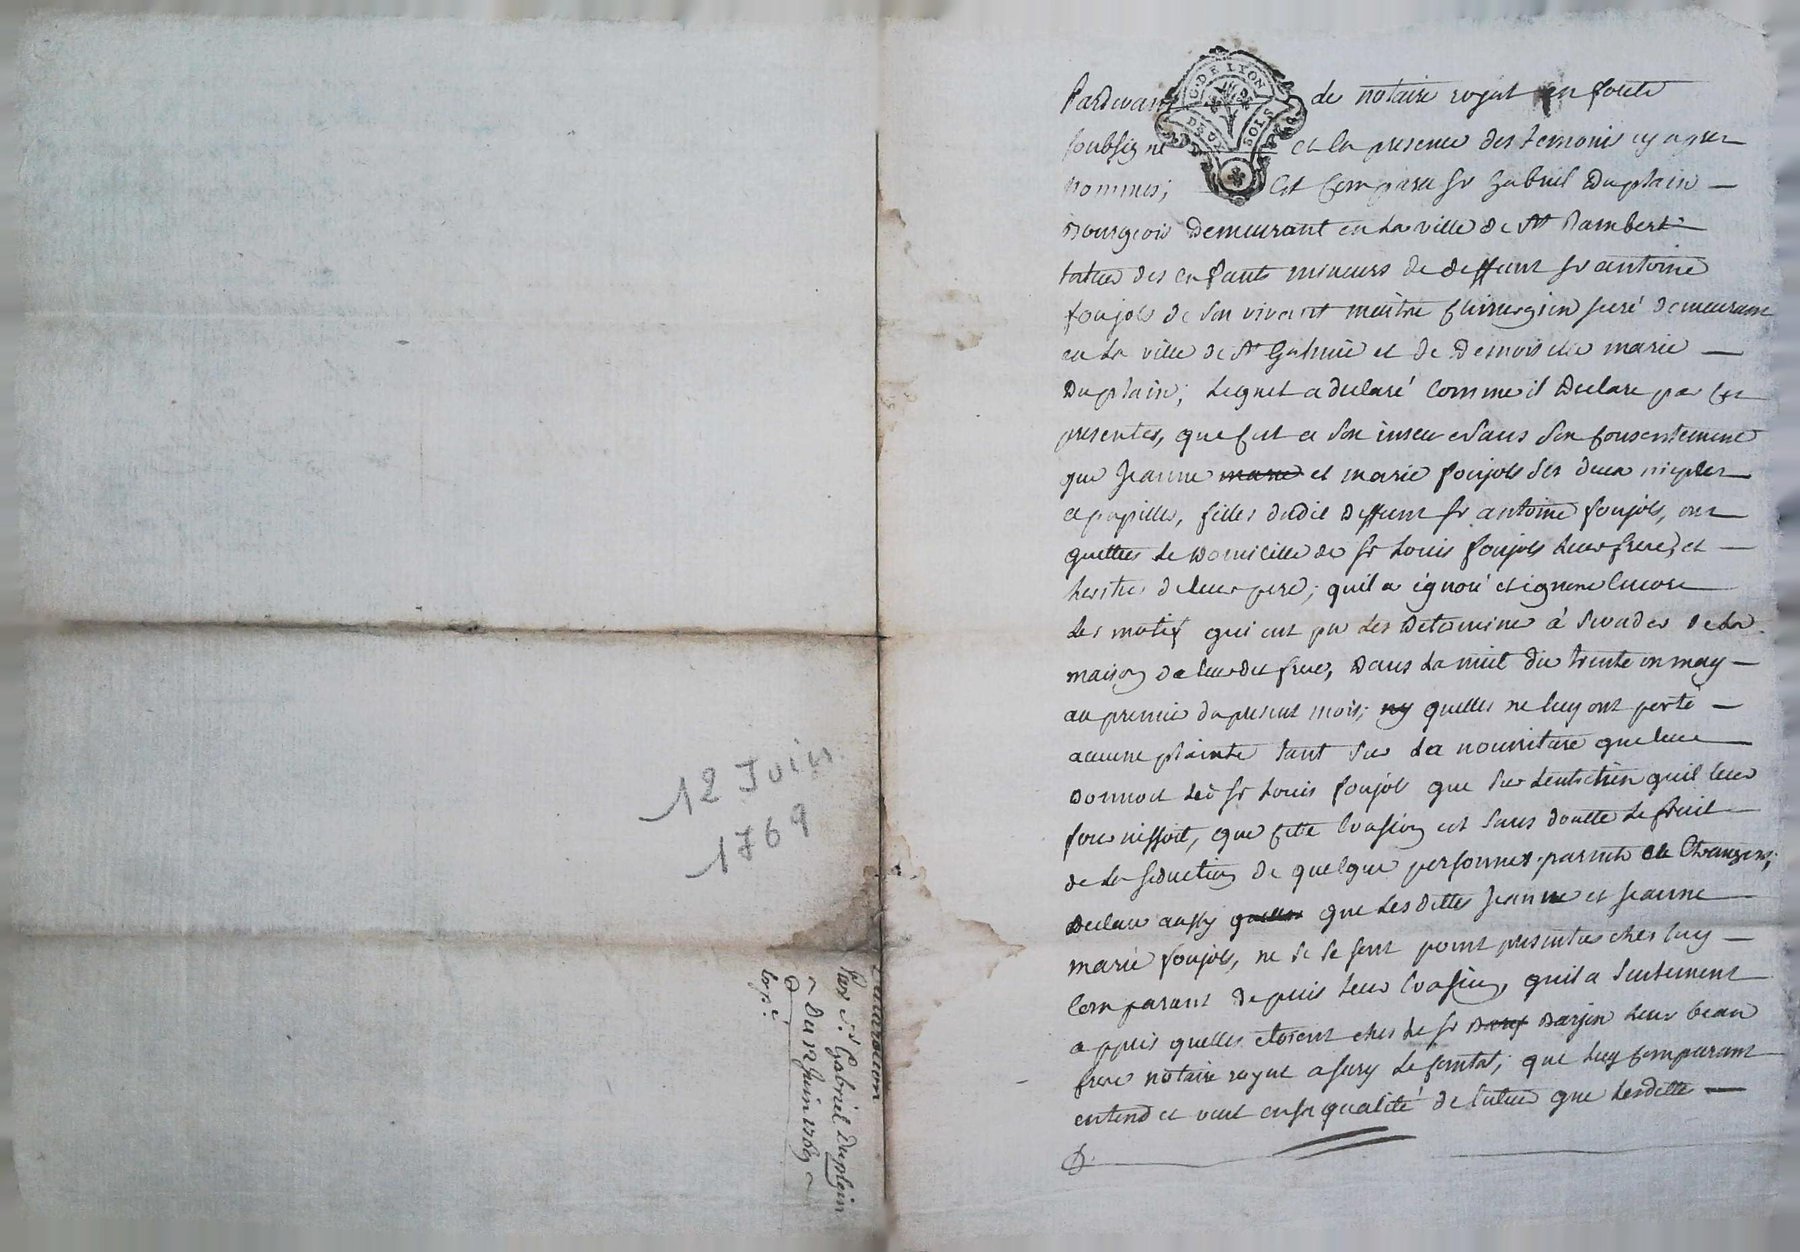 12 Juin
1769
Declaration
Par Sr. Gabriel Duplain
~ Du 12 Juin 1769 ~
G. DE LYON
DEUX SOLS
Pardevant le notaire royal en forets
soubsigné et en presence des temoins cy apres
nommes; Est Comparu Sr Gabriel Duplain
Bourgeois Demeurant en La ville de St Rambert
tuteur des enfants mineurs de deffunt Sr antoine
foujols de son vivant maitre chirurgien juré demeurant
en La ville de St Galmie et de Demoiselle marie
Duplain; Lequel a declaré Comme il Declare par Ces
presentes, que c'est a son inseu et sans son consentement
que Jeanne marie et marie foujols ses deux niepces
et pupilles, filles dudit Deffunt Sr antoine foujols, ont
quittées Le Domicille de Sr Louis foujols Leur frere, et
heritier de Leur pere; quil a ignoré et ignore Encore
Les motifs qui ont pu Les Determiner à s'evader de La
maison de leurdit frere, Dans La nuit du trente un may
au premier du present mois; ny quelles ne luy ont porté
aucune plainte tant sur La nourriture que leur
Donnoit Led Sr Louis foujols que sur Lentretien quil leur
fournissoit, que cette Evasion est sans doutte Le fruit
de La seduction de quelque personnes parents ou Etrangers;
Declare aussy quelles que Lesdittes Jeanne et Jeanne
marie foujols, ne se sont point presentées ches luy
Comparant depuis Leur Evasion, quil a seulement
appris quelles etoient ches Le Sr Darjen Leur beau
frere notaire royal a sury Le Comtal; que Luy Comparant
entend et veut en sa qualité de tuteur que Lesdittes